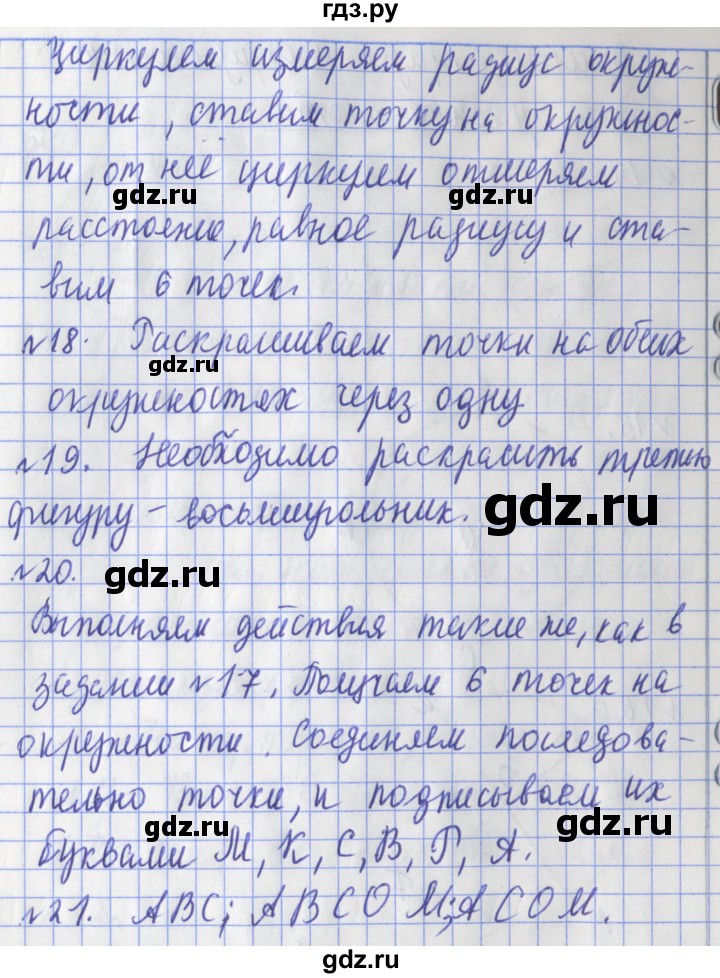 гдз.ру
Циркулем измеряем радиус окруж-
ности, ставим точку на окружнос-
ти, от неё циркулем отмеряем
gdz.ru gdz.ru
расстояние, равное радиусу и ста-
вим 6 точек.
№18. Раскрашиваем точки на обеих
gdz.ru
окружностях через одну
№19. Необходимо раскрасить третью
фигуру - восьмиугольник. gdz.ru
№20. gdz.ru
Выполняем действия такие же, как в
задании №17. Получаем 6 точек на
окружности. Соединяем последова-
тельно точки, и подписываем их
gdz.ru gdz.ru
буквами М, К, С, В, Г, А.
№21. АВС; АВСО М; АСОМ.
gdz.ru